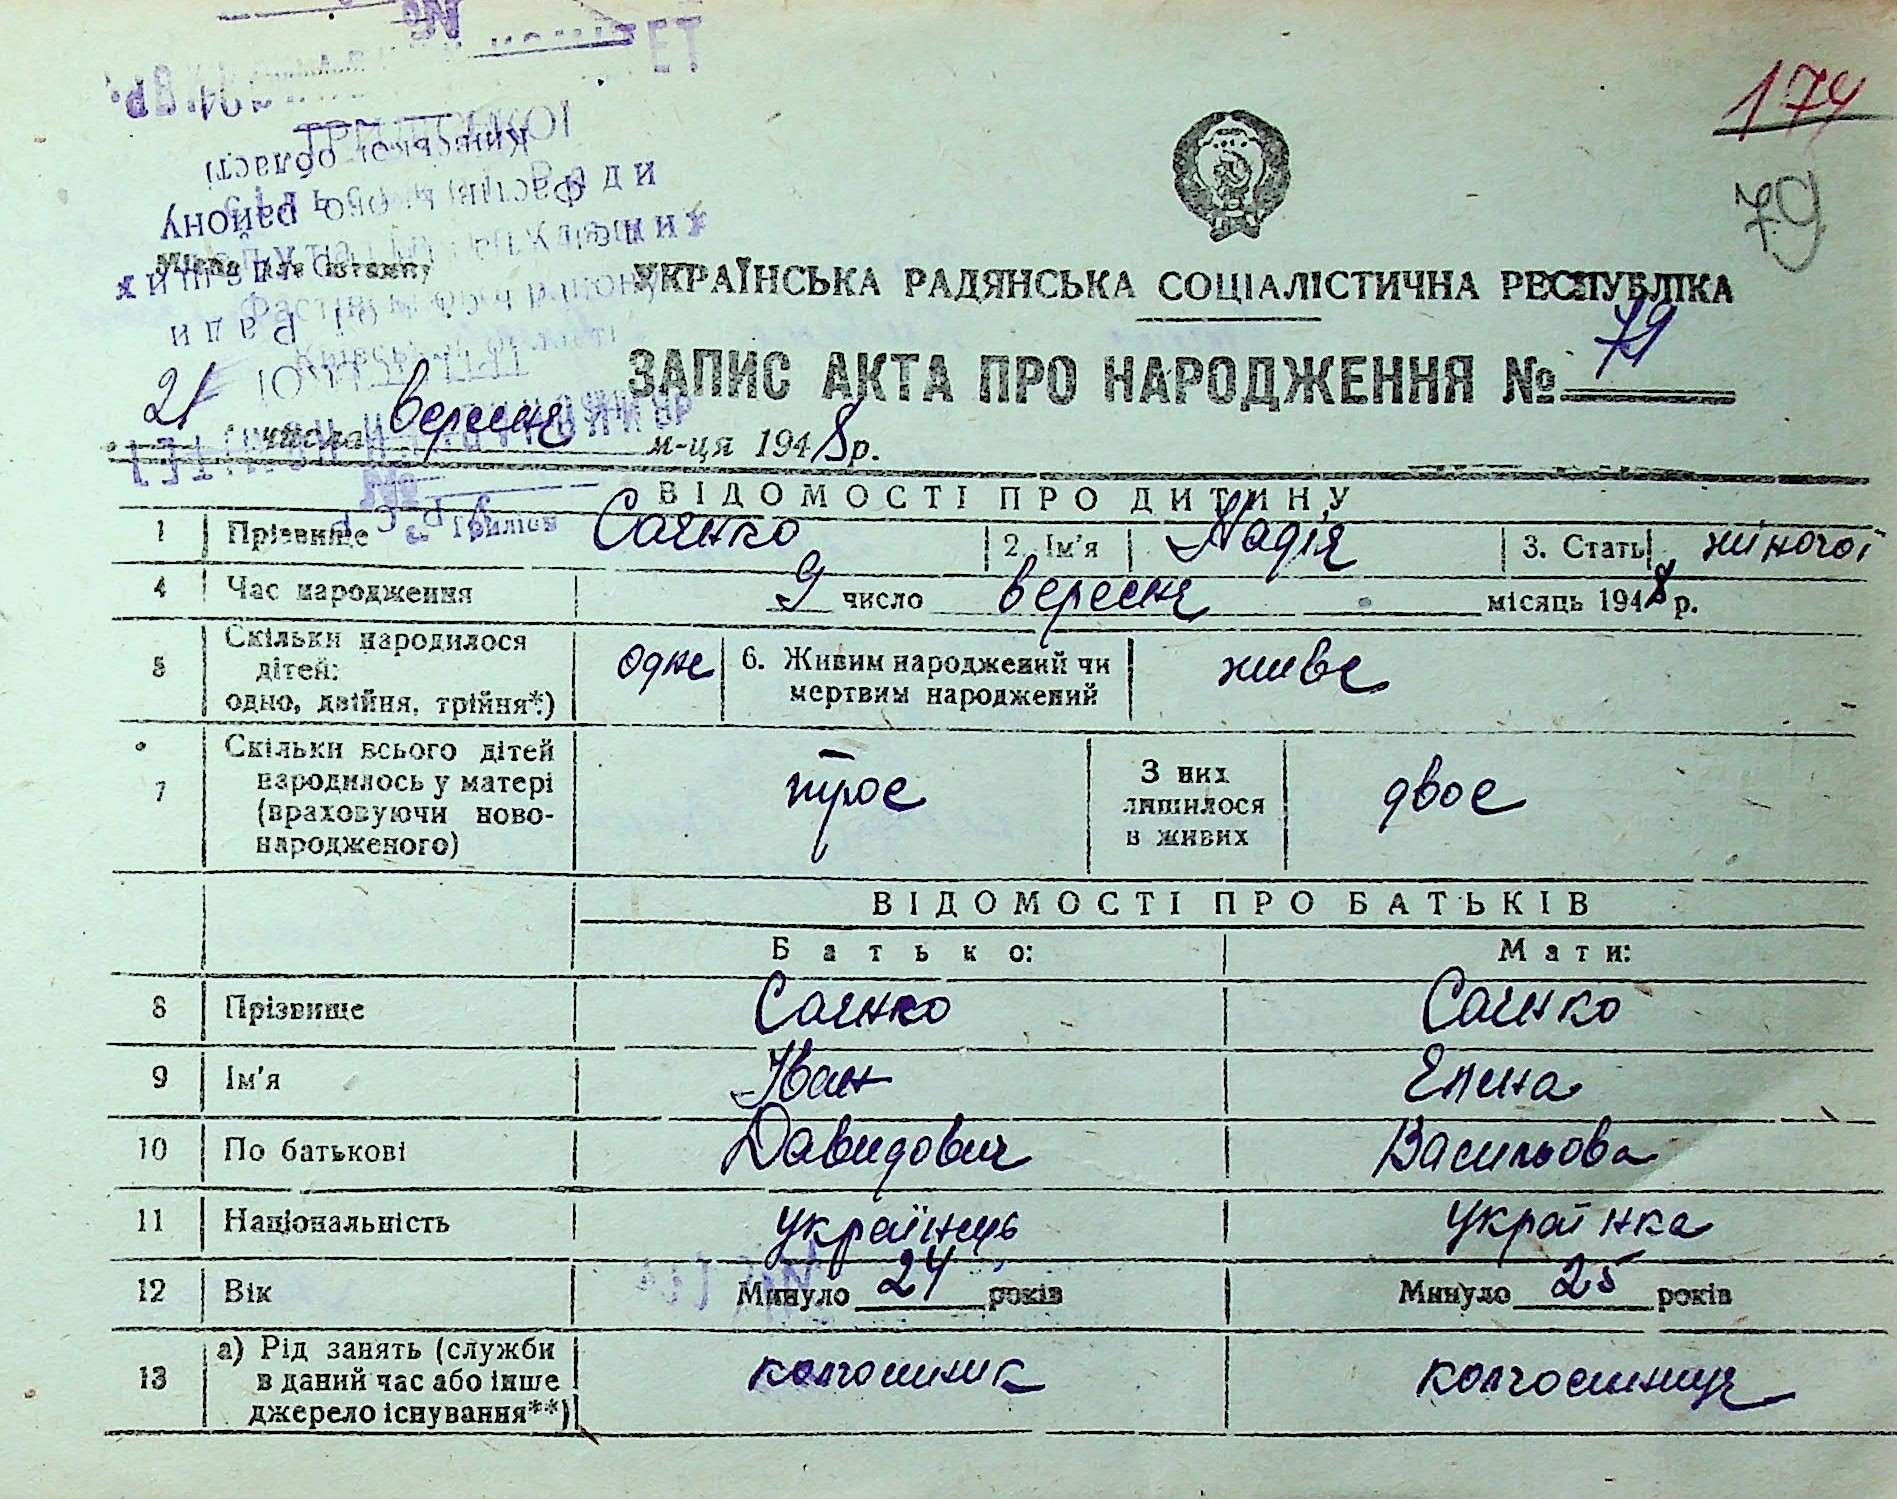 174
79
Місце для штампу
УКРАЇНСЬКА РАДЯНСЬКА СОЦІАЛІСТИЧНА РЕСПУБЛІКА
ЗАПИС АКТА ПРО НАРОДЖЕННЯ № 79
21 числа вересня м-ця 1948 р.
ВІДОМОСТІ ПРО ДИТИНУ
1 Прізвище Саченко 2. Ім'я Надія 3. Стать жіночої
4 Час народження 9 число вересня місяць 1948 р.
5 Скільки народилося
дітей:
одно, двійня, трійня*)
одне 6. Живим народжений чи
мертвим народжений
живе
7 Скільки всього дітей
народилось у матері
(враховуючи ново-
народженого)
троє
З них
лишилося
в живих
двоє
ВІДОМОСТІ ПРО БАТЬКІВ
Батько: Мати:
8 Прізвище Саченко Саченко
9 Ім'я Іван Елена
10 По батькові Давидович Васильова
11 Національність українець українка
12 Вік Минуло 24 років Минуло 25 років
13 а) Рід занять (служби
в даний час або інше
джерело існування**)
колгоспник колгоспниця